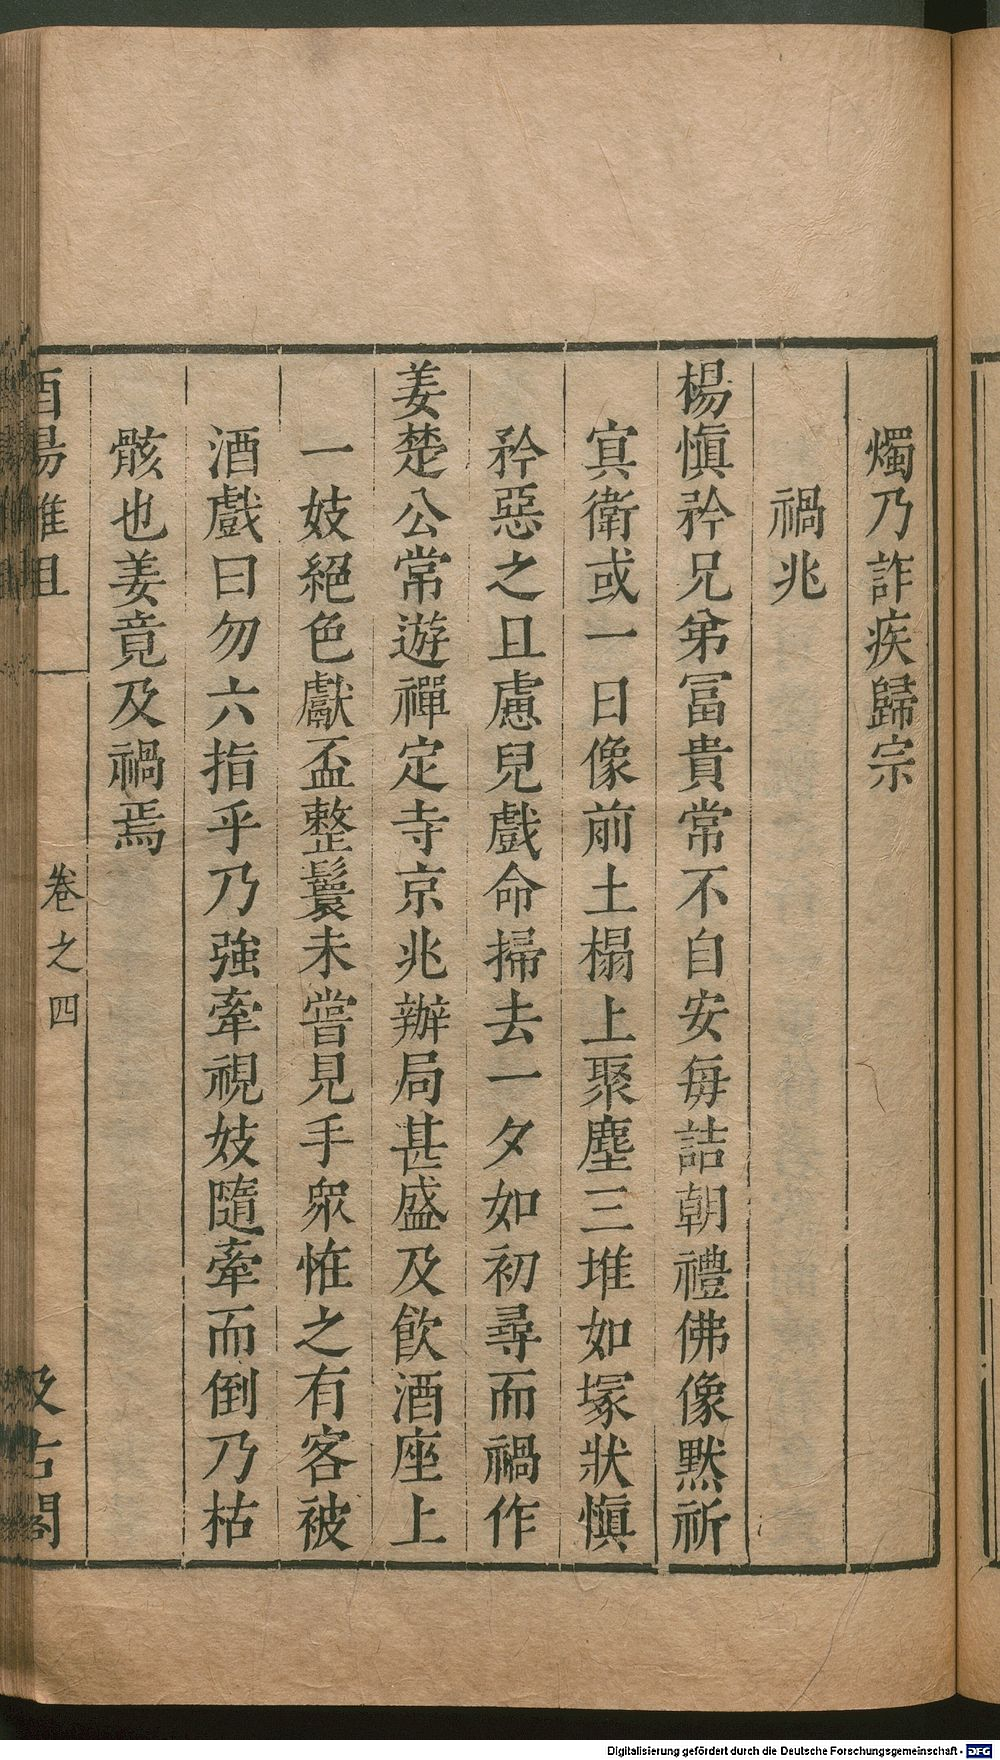 燭乃詐疾歸宗
禍兆
楊愼矜兄弟冨貴常不自安每詰朝禮佛像默祈
寘衛或一日像前土榻上聚塵三堆如塚狀愼
矜惡之且慮兒戲命掃去一夕如初尋而禍作
姜楚公常遊禪定寺京兆辦局甚盛及飲酒座上
一妓絕色獻盃整鬟未嘗見手衆恠之有客被
酒戲曰勿六指乎乃強牽視妓隨牽而倒乃枯
骸也姜竟及禍焉
酉陽雜俎
卷之四
汲古閣
Digitalisierung gefördert durch die Deutsche Forschungsgemeinschaft - DFG